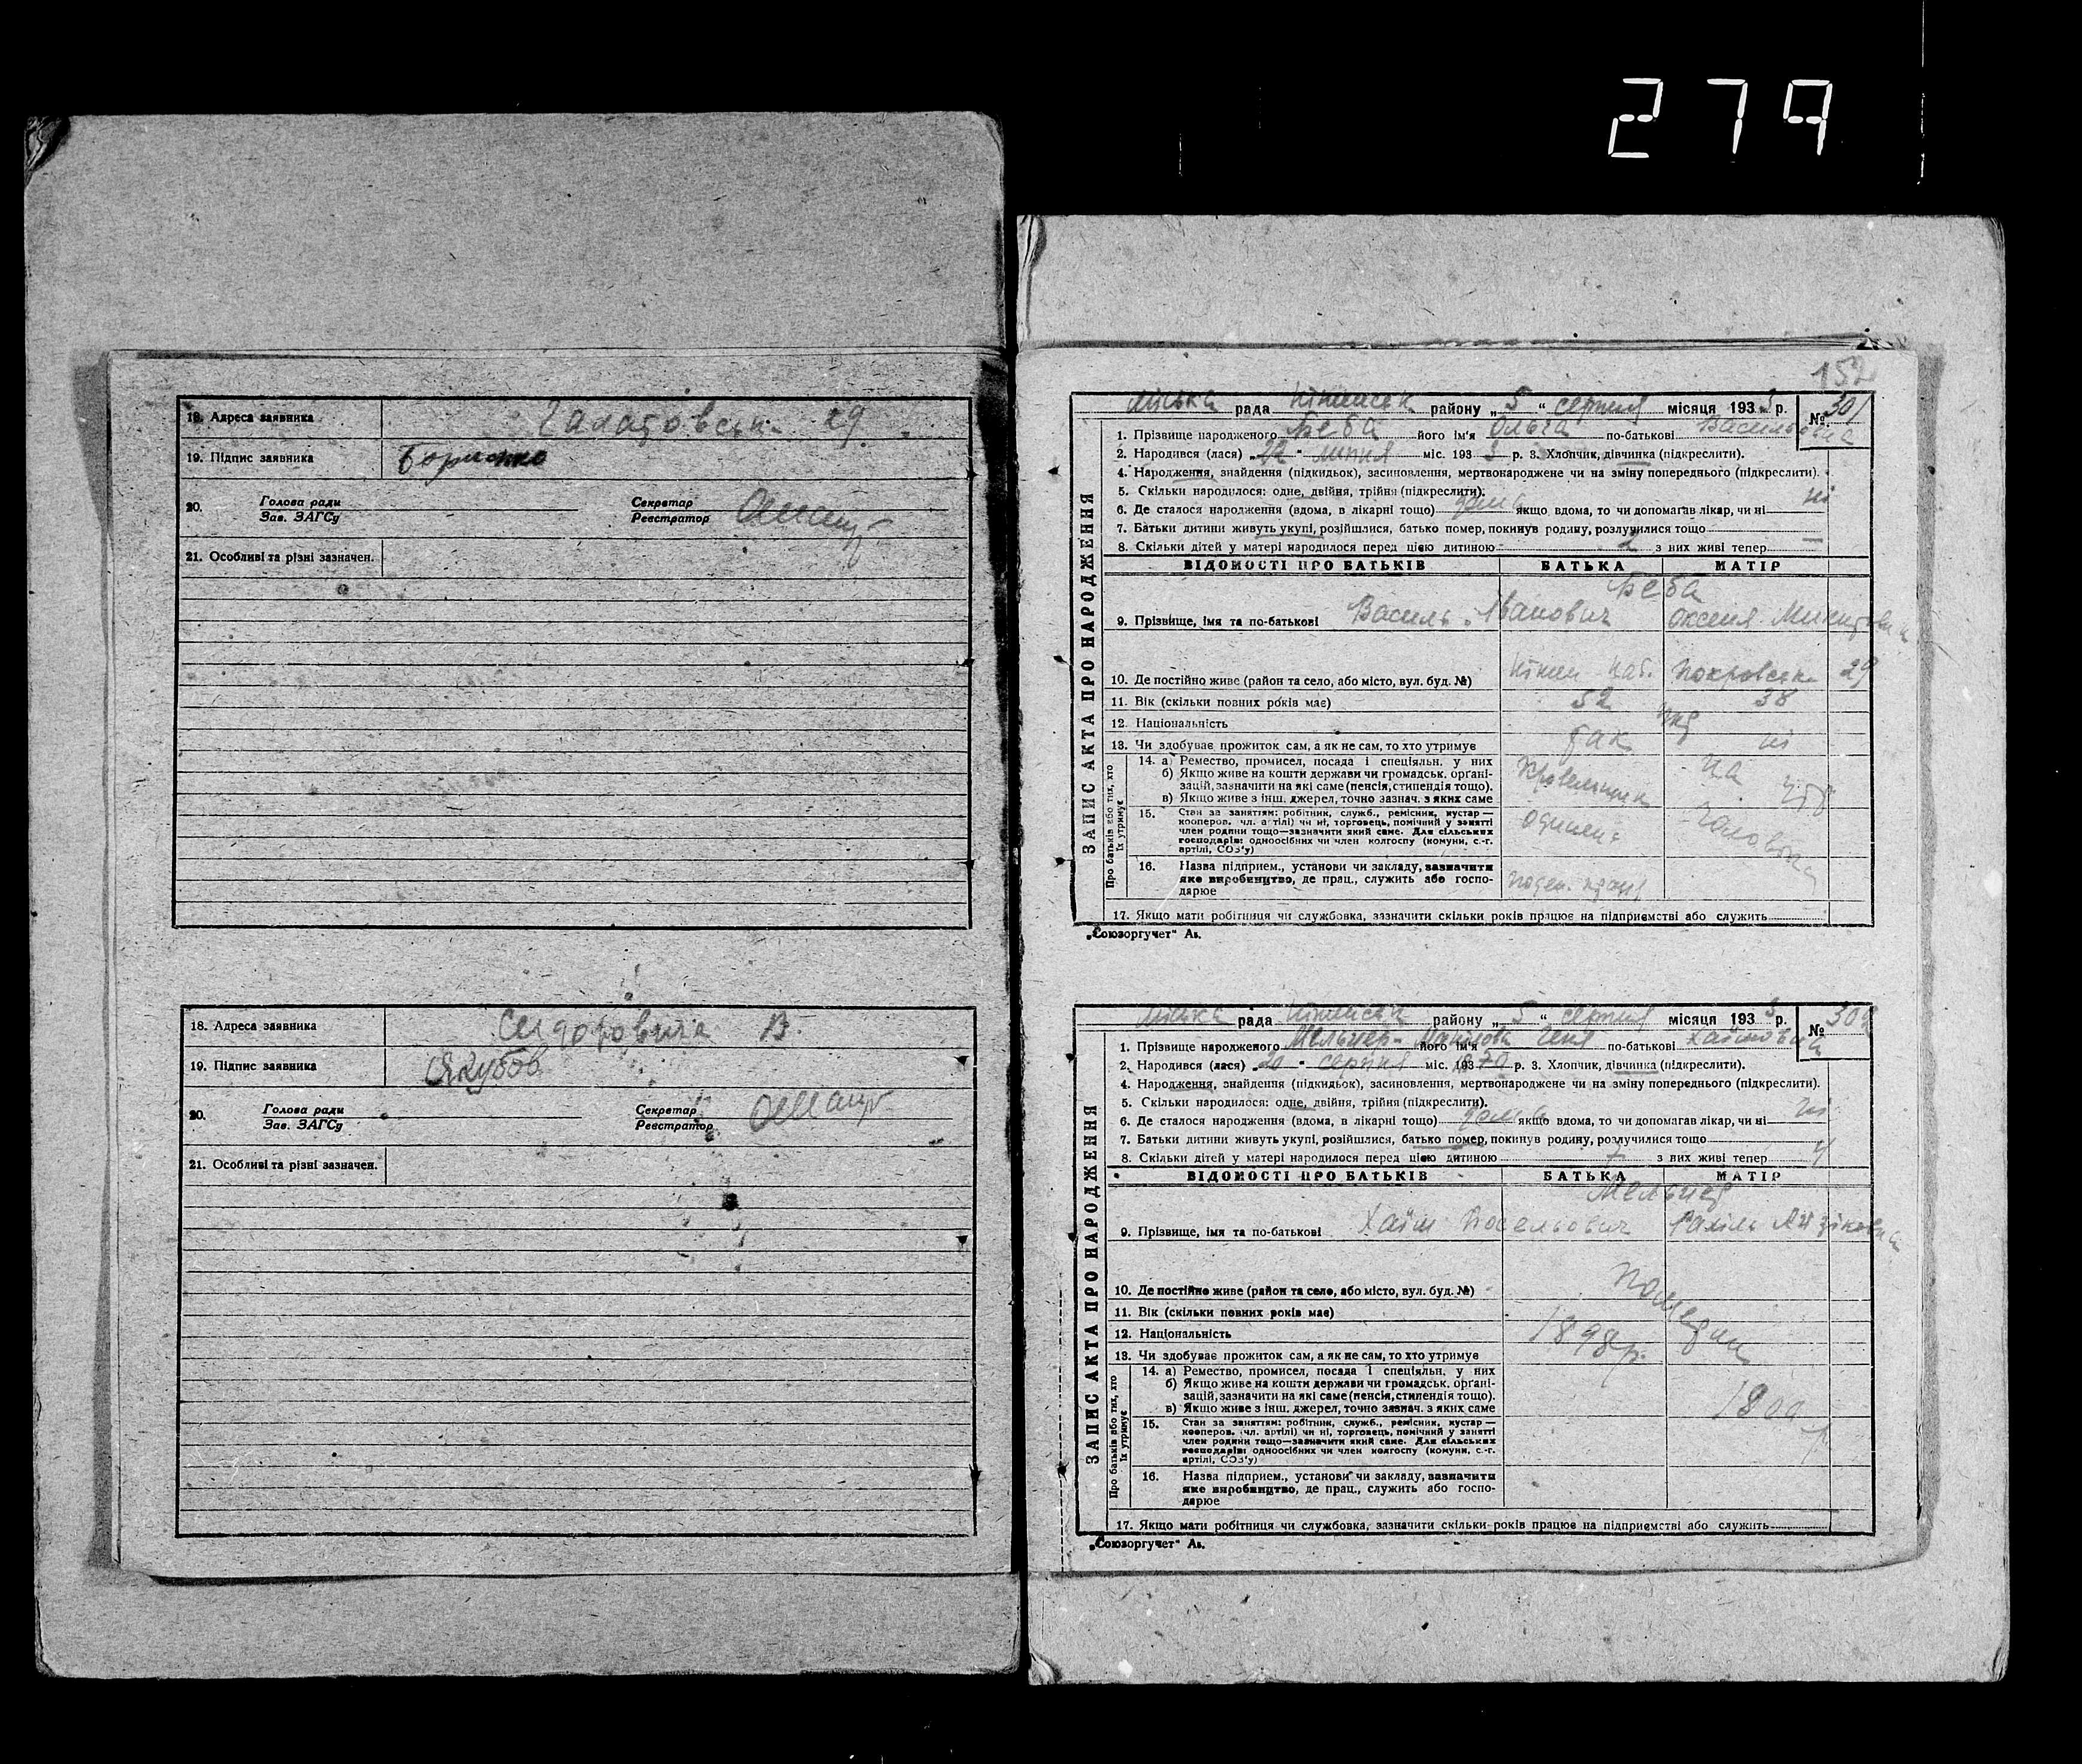 279
18. Адреса заявника 29
19. Підпис заявника
20. Голова ради
Зав. ЗАГСу
Секретар
Реєстратор
21. Особливі та різні зазначен.
18. Адреса заявника В.
19. Підпис заявника
20. Голова ради
Зав. ЗАГСу
Секретар
Реєстратор
21. Особливі та різні зазначен.
152
ЗАПИС АКТА ПРО НАРОДЖЕННЯ
Міська рада району „5“ серпня місяця 1933 р. № 301
1. Прізвище народженого Беба його ім'я Ольга по-батькові Васильовна
2. Народився (лася) „22“ липня міс. 1933 р. 3. Хлопчик, дівчинка (підкреслити).
4. Народження, знайдення (підкидьок), засиновлення, мертвонароджене чи на зміну попереднього (підкреслити).
5. Скільки народилося: одне, двійня, трійня (підкреслити).
6. Де сталося народження (вдома, в лікарні тощо) дома якщо вдома, то чи допомагав лікар, чи ні ні
7. Батьки дитини живуть укупі, розійшлися, батько помер, покинув родину, розлучилися тощо
8. Скільки дітей у матері народилося перед цією дитиною 2 з них живі тепер —
ВІДОМОСТІ ПРО БАТЬКІВ БАТЬКА МАТІР
Беба
9. Прізвище, імя та по-батькові Василь Іванович Оксеня
10. Де постійно живе (район та село, або місто, вул. буд. №) Покровськ 29
11. Вік (скільки повних років має) 52 38
12. Національність укр
13. Чи здобуває прожиток сам, а як не сам, то хто утримує так ні
Про батьків або тих, хто їх утримує
14. а) Ремество, промисел, посада і спеціяльн. у них
б) Якщо живе на кошти держави чи громадськ. органі-
зацій, зазначити на які саме (пенсія, стипендія тощо).
в) Якщо живе з інш. джерел, точно зазнач. з яких саме
Кровельник На
15. Стан за заняттям: робітник, служб., ремісник, кустар —
кооперов. чл. артілі) чи ні, торговець, помічний у занятті
член родини тощо—зазначити який саме. Для сільських
господарів: одноосібних чи член колгоспу (комуни, с.-г.
артілі, СОЗ'у)
16. Назва підприєм., установи чи закладу, зазначити
яке виробництво, де прац., служить або госпо-
дарює
17. Якщо мати робітниця чи службовка, зазначити скільки років працює на підприємстві або служить
„Союзоргучет“ Ав.
ЗАПИС АКТА ПРО НАРОДЖЕННЯ
Міська рада району „5“ серпня місяця 1933 р. № 302
1. Прізвище народженого Мельцер його ім'я Геня по-батькові Хаімовна
2. Народився (лася) „20“ серпня міс. 193 р. 3. Хлопчик, дівчинка (підкреслити).
4. Народження, знайдення (підкидьок), засиновлення, мертвонароджене чи на зміну попереднього (підкреслити).
5. Скільки народилося: одне, двійня, трійня (підкреслити).
6. Де сталося народження (вдома, в лікарні тощо) дома якщо вдома, то чи допомагав лікар, чи ні ні
7. Батьки дитини живуть укупі, розійшлися, батько помер, покинув родину, розлучилися тощо
8. Скільки дітей у матері народилося перед цією дитиною 7 з них живі тепер 4
ВІДОМОСТІ ПРО БАТЬКІВ БАТЬКА МАТІР
Мельцер
9. Прізвище, імя та по-батькові Хаїм
10. Де постійно живе (район та село, або місто, вул. буд. №)
11. Вік (скільки повних років має)
12. Національність 1898р.
13. Чи здобуває прожиток сам, а як не сам, то хто утримує
Про батьків або тих, хто їх утримує
14. а) Ремество, промисел, посада і спеціяльн. у них
б) Якщо живе на кошти держави чи громадськ. органі-
зацій, зазначити на які саме (пенсія, стипендія тощо).
в) Якщо живе з інш. джерел, точно зазнач. з яких саме
15. Стан за заняттям: робітник, служб., ремісник, кустар —
кооперов. чл. артілі) чи ні, торговець, помічний у занятті
член родини тощо—зазначити який саме. Для сільських
господарів: одноосібних чи член колгоспу (комуни, с.-г.
артілі, СОЗ'у)
16. Назва підприєм., установи чи закладу, зазначити
яке виробництво, де прац., служить або госпо-
дарює
17. Якщо мати робітниця чи службовка, зазначити скільки років працює на підприємстві або служить
„Союзоргучет“ Ав.